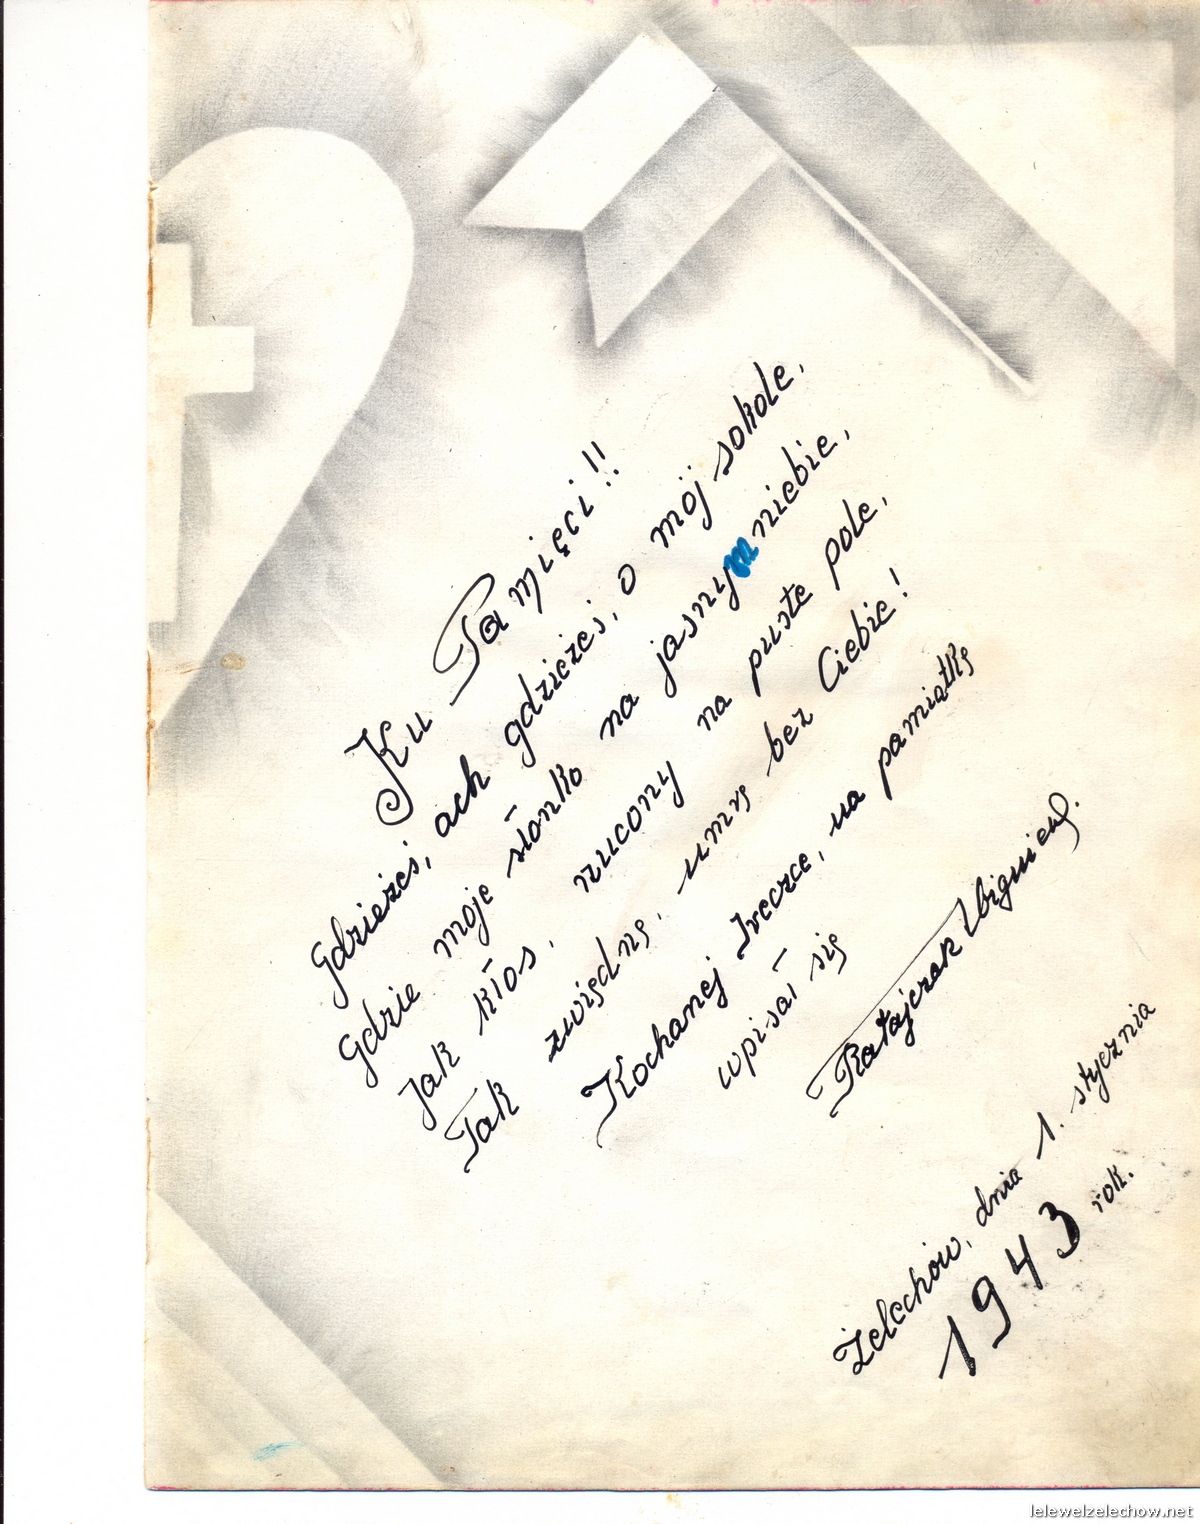 Ku Pamięci!!
Gdzieżeś, ach gdzieżeś, o mój sokole,
Gdzie moje słonko na jasnym niebie,
Jak kłos, rzucony na puste pole,
Tak zwiędnę, umrę bez Ciebie!
Kochanej Ireczce, na pamiątkę
wpisał się
Ratajczak Zbigniew.
Żelechów, dnia 1. stycznia
1943 rok.
lelewelzelechow.net